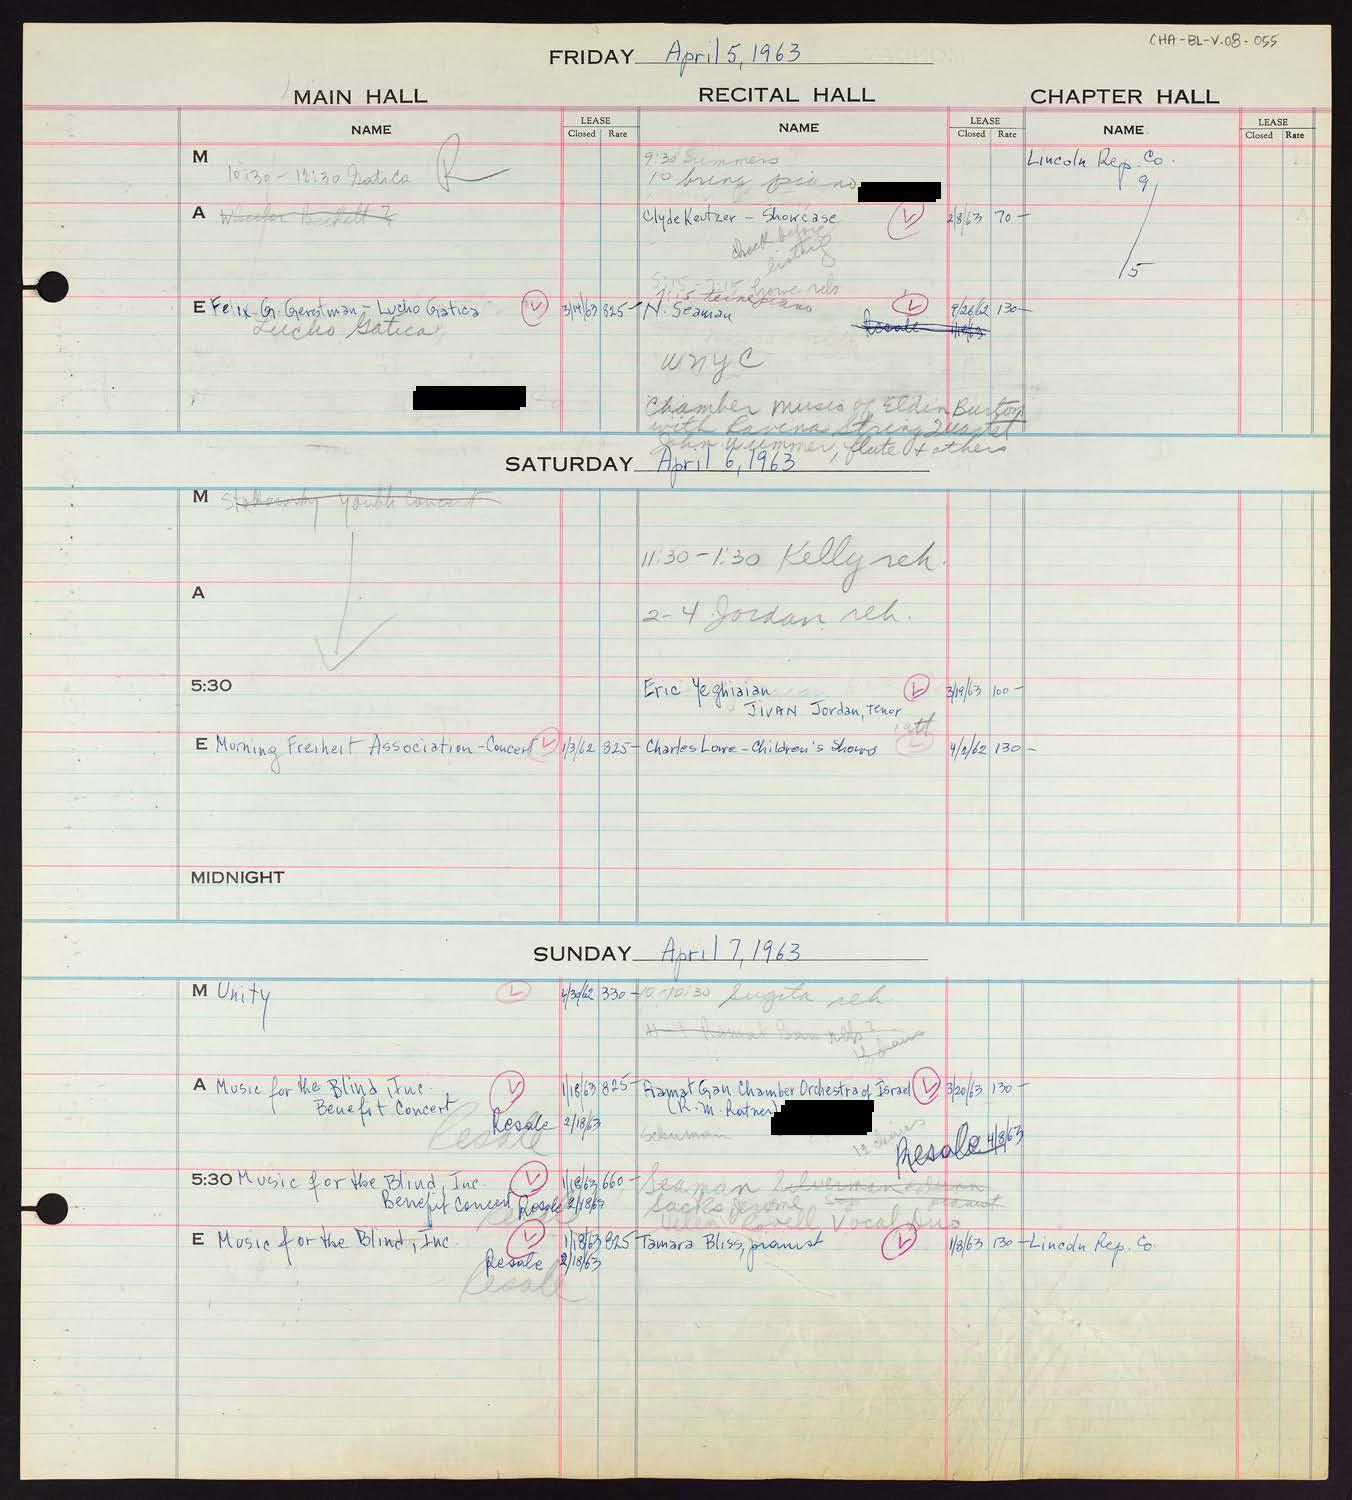 CHA-BL-V.08.055
FRIDAY April 5, 1963
MAIN HALL RECITAL HALL CHAPTER HALL
NAME LEASE Closed Rate NAME LEASE Closed Rate NAME LEASE Closed Rate
M 10:30-12:30 Gatica R
9:30 Summers
10 bring piano
Lincoln Rep. Co.
9
5
A
Clyde Keutzer - Showcase L 2/8/63 70-
check before
listing
E Felix G. Gerstman - Lucho Gatica L 3/14/63 825-
Lucho Gatica
7:15 tune piano
N. Seaman L 9/26/62 130-
Resale
WNYC
Chamber music of Eldin Burton
with Ravina String Quartet
John Wummer, flute & others
SATURDAY April 6, 1963
M Stokowsky Youth Concert
11:30-1:30 Kelly reh.
A
2-4 Jordan reh.
5:30
Eric Yeghiaian L 3/19/63 100-
JIVAN Jordan, Tenor
E Morning Freiheit Association - Concert L 1/3/62 825-
Charles Lowe - Children's Shows L 4/2/62 130-
MIDNIGHT
SUNDAY April 7, 1963
M Unity L 4/30/62 330-
10-10:30 Sugita reh
A Music for the Blind, Inc. L 1/18/63 825-
Benefit Concert
Resale 2/18/63
Resale
Ramat Gan Chamber Orchestra of Israel L 3/20/63 130-
(R. M. Ratner)
Schuman
12 chairs
Resale 4/8/63
5:30 Music for the Blind, Inc. L 1/18/63 660-
Benefit Concert Resale 2/18/63
Resale
Seaman Silverman
Sacks Jerome
Helen Lovell Vocal Duo
E Music for the Blind, Inc. L 1/18/63 825
Resale 2/18/63
Resale
Tamara Bliss, pianist L 1/8/63 130-
Lincoln Rep. Co